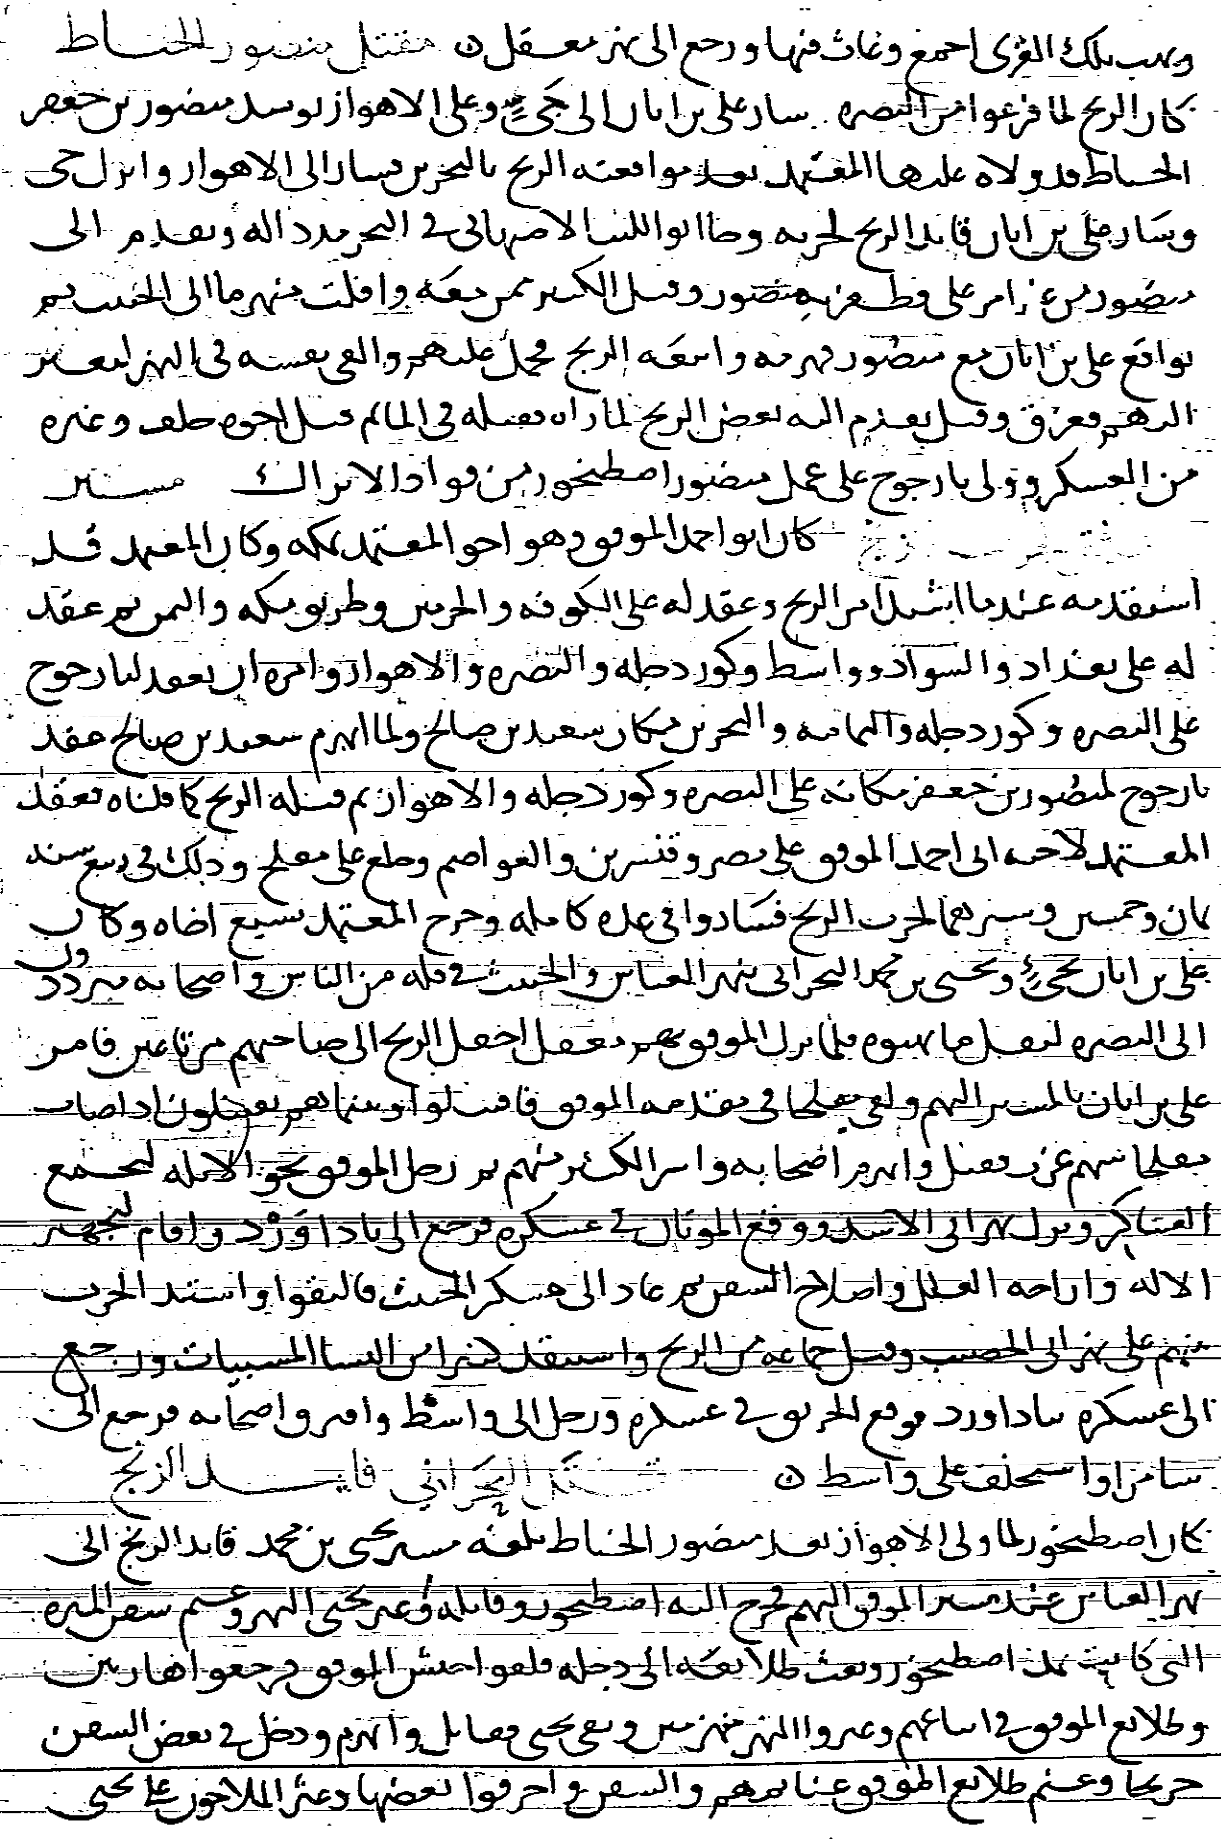 ونهب تلك القرى اجمع وعاث فيها ورجع الى نهر معقل ٥ مقتل منصور الخياط
كان الزنج لما فرغوا من البصره سار على بن ابان الى جى وعلى الاهواز يومىد منصور بن جعفر
الخياط قد ولاه عليها المعتمد بعد مواقعته الزنج بالبحرين فسار الى الاهواز وانزل جى
وسار على بن ابان قايد الزنج لحربه وجا ابو الليث الاصبهانى فى البحر مددا له وتقدم الى
منصور من غير امر على فظفر به منصور وقتل الكثير ممن معه وافلت منهزما الى الخبيث ثم
تواقع على بن ابان مع منصور فهزمه واتبعه الزنج فحمل عليهم والقى نفسه فى النهر ليعبر
اليهم فغرق وقيل تقدم اليه بعض الزنج لما راه فقتله فى الما ثم قتل اخوه خلف وغيره
من العسكر وولى يارجوج على عمل منصور اصطيخور من قواد الاتراك مسير
كان ابو احمد الموفق وهو اخو المعتمد بمكه وكان المعتمد قد
استقدمه عندما اشتد امر الزنج وعقد له على الكوفه والحرمين وطريق مكه واليمن ثم عقد
له على بغداد والسواد وواسط وكور دجله والبصره والاهواز وامره ان يعقد ليارجوج
على البصره وكور دجله واليمامه والبحرين مكان سعيد بن صالح ولما انهزم سعيد بن صالح عقد
يارجوج لمنصور بن جعفر مكانه على البصره وكور دجله والاهواز ثم قتله الزنج كما قلناه فعقد
المعتمد لاخيه ابى احمد الموفق على مصر وقنسرين والعواصم وخلع على مفلح وذلك فى ربيع سنه
ثمان وخمسين وسيرهما لحرب الزنج فساروا فى عده كامله وخرج المعتمد يشيع اخاه وكان
على بن ابان بجى ويحيى بن محمد البحرانى بنهر العباس والخبيث فى قله من الناس واصحابه يترددون
الى البصره لنقل ما نهبوه فلما نزل الموفق نهر معقل اجفل الزنج الى صاحبهم مرتاعين فامر
على بن ابان بالمسير اليهم ولقى مفلحا فى مقدمه الموفق فاقتتلوا وبينما هم يقتتلون اذ اصاب
مفلحا سهم غرب فقتل وانهزم اصحابه واسر الكثير منهم ثم رحل الموفق نحو الابله ليجمع
العساكر ونزل نهر ابى الاسد ووقع الموتان فى عسكره فرجع الى باداوَرْد واقام لتجهيز
الاله وازاحه العلل واصلاح السفن ثم عاد الى عسكر الخبيث فالتقوا واشتد الحرب
بينهم على نهر ابى الخصيب وقتل جماعه من الزنج واستنقذ كثيرا من النسا المسبيات ورجع
الى عسكره بباداورد فوقع الحريق فى عسكره ورحل الى واسط وافترق اصحابه فرجع الى
سامرا واستخلف على واسط ٥ مقتل البحرانى قايد الزنج
كان اصطيخور لما ولى الاهواز بعد منصور الخياط بلغه مسير يحيى بن محمد قايد الزنج الى
نهر العباس عند مسير الموفق اليهم فخرج اليه اصطيخور وقاتله وعبر يحيى النهر وغنم سفن الميره
التى كانت عند اصطيخور وبعث طلايعه الى دجله فلقوا جيش الموفق فرجعوا هاربين
وطلايع الموفق فى اتباعهم وعبروا النهر منهزمين وبقى يحيى فقاتل وانهزم ودخل فى بعض السفن
جريحا وغنم طلايع الموفق غنايمهم والسفن واحرقوا بعضها وعثر الملاحون على يحيى